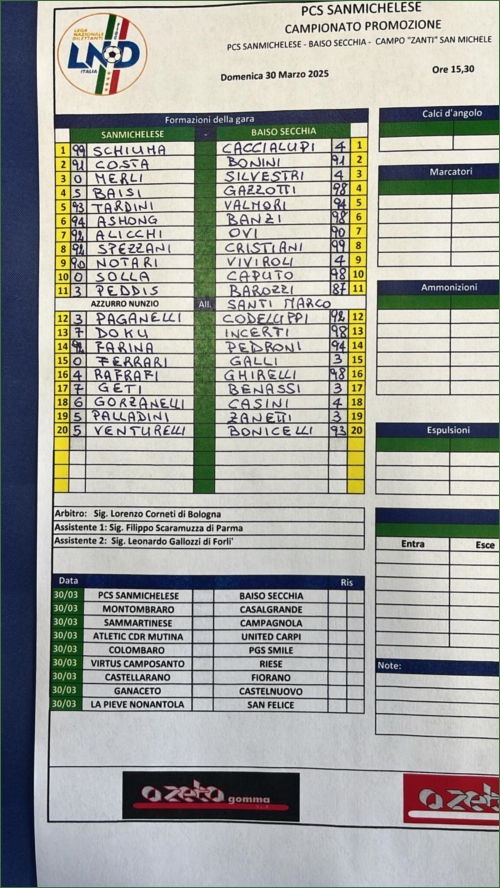 PCS SANMICHELESE
CAMPIONATO PROMOZIONE
PCS SANMICHELESE - BAISO SECCHIA - CAMPO "ZANTI" SAN MICHELE
Domenica 30 Marzo 2025 Ore 15,30
LEGA NAZIONALE DILETTANTI
LND
ITALIA
Formazioni della gara
SANMICHELESE - BAISO SECCHIA
1 99 SCHIUMA CACCIALUPI 4 1
2 91 COSTA BONINI 91 2
3 0 MERLI SILVESTRI 4 3
4 5 BAISI GAZZOTTI 98 4
5 93 TARDINI VALMORI 94 5
6 94 ASHONG BANZI 98 6
7 92 ALICCHI OVI 90 7
8 92 SPEZZANI CRISTIANI 99 8
9 90 NOTARI VIVIROLI 4 9
10 0 SOLLA CAPUTO 98 10
11 3 PEDDIS BAROZZI 87 11
AZZURRO NUNZIO All. SANTI MARCO
12 3 PAGANELLI CODELUPPI 92 12
13 7 DOKU INCERTI 98 13
14 FARINA PEDRONI 94 14
15 0 FERRARI GALLI 3 15
16 4 RAFRAFI GHIRELLI 98 16
17 7 GETI BENASSI 3 17
18 6 GORZANELLI CASINI 4 18
19 5 PALLADINI ZANETTI 3 19
20 5 VENTURELLI BONICELLI 93 20
Arbitro: Sig. Lorenzo Corneti di Bologna
Assistente 1: Sig. Filippo Scaramuzza di Parma
Assistente 2: Sig. Leonardo Gallozzi di Forli'
Data Ris
30/03 PCS SANMICHELESE BAISO SECCHIA
30/03 MONTOMBRARO CASALGRANDE
30/03 SAMMARTINESE CAMPAGNOLA
30/03 ATLETIC CDR MUTINA UNITED CARPI
30/03 COLOMBARO PGS SMILE
30/03 VIRTUS CAMPOSANTO RIESE
30/03 CASTELLARANO FIORANO
30/03 GANACETO CASTELNUOVO
30/03 LA PIEVE NONANTOLA SAN FELICE
Calci d'angolo
Marcatori
Ammonizioni
Espulsioni
Entra Esce
Note:
a zeta gomma
a zet